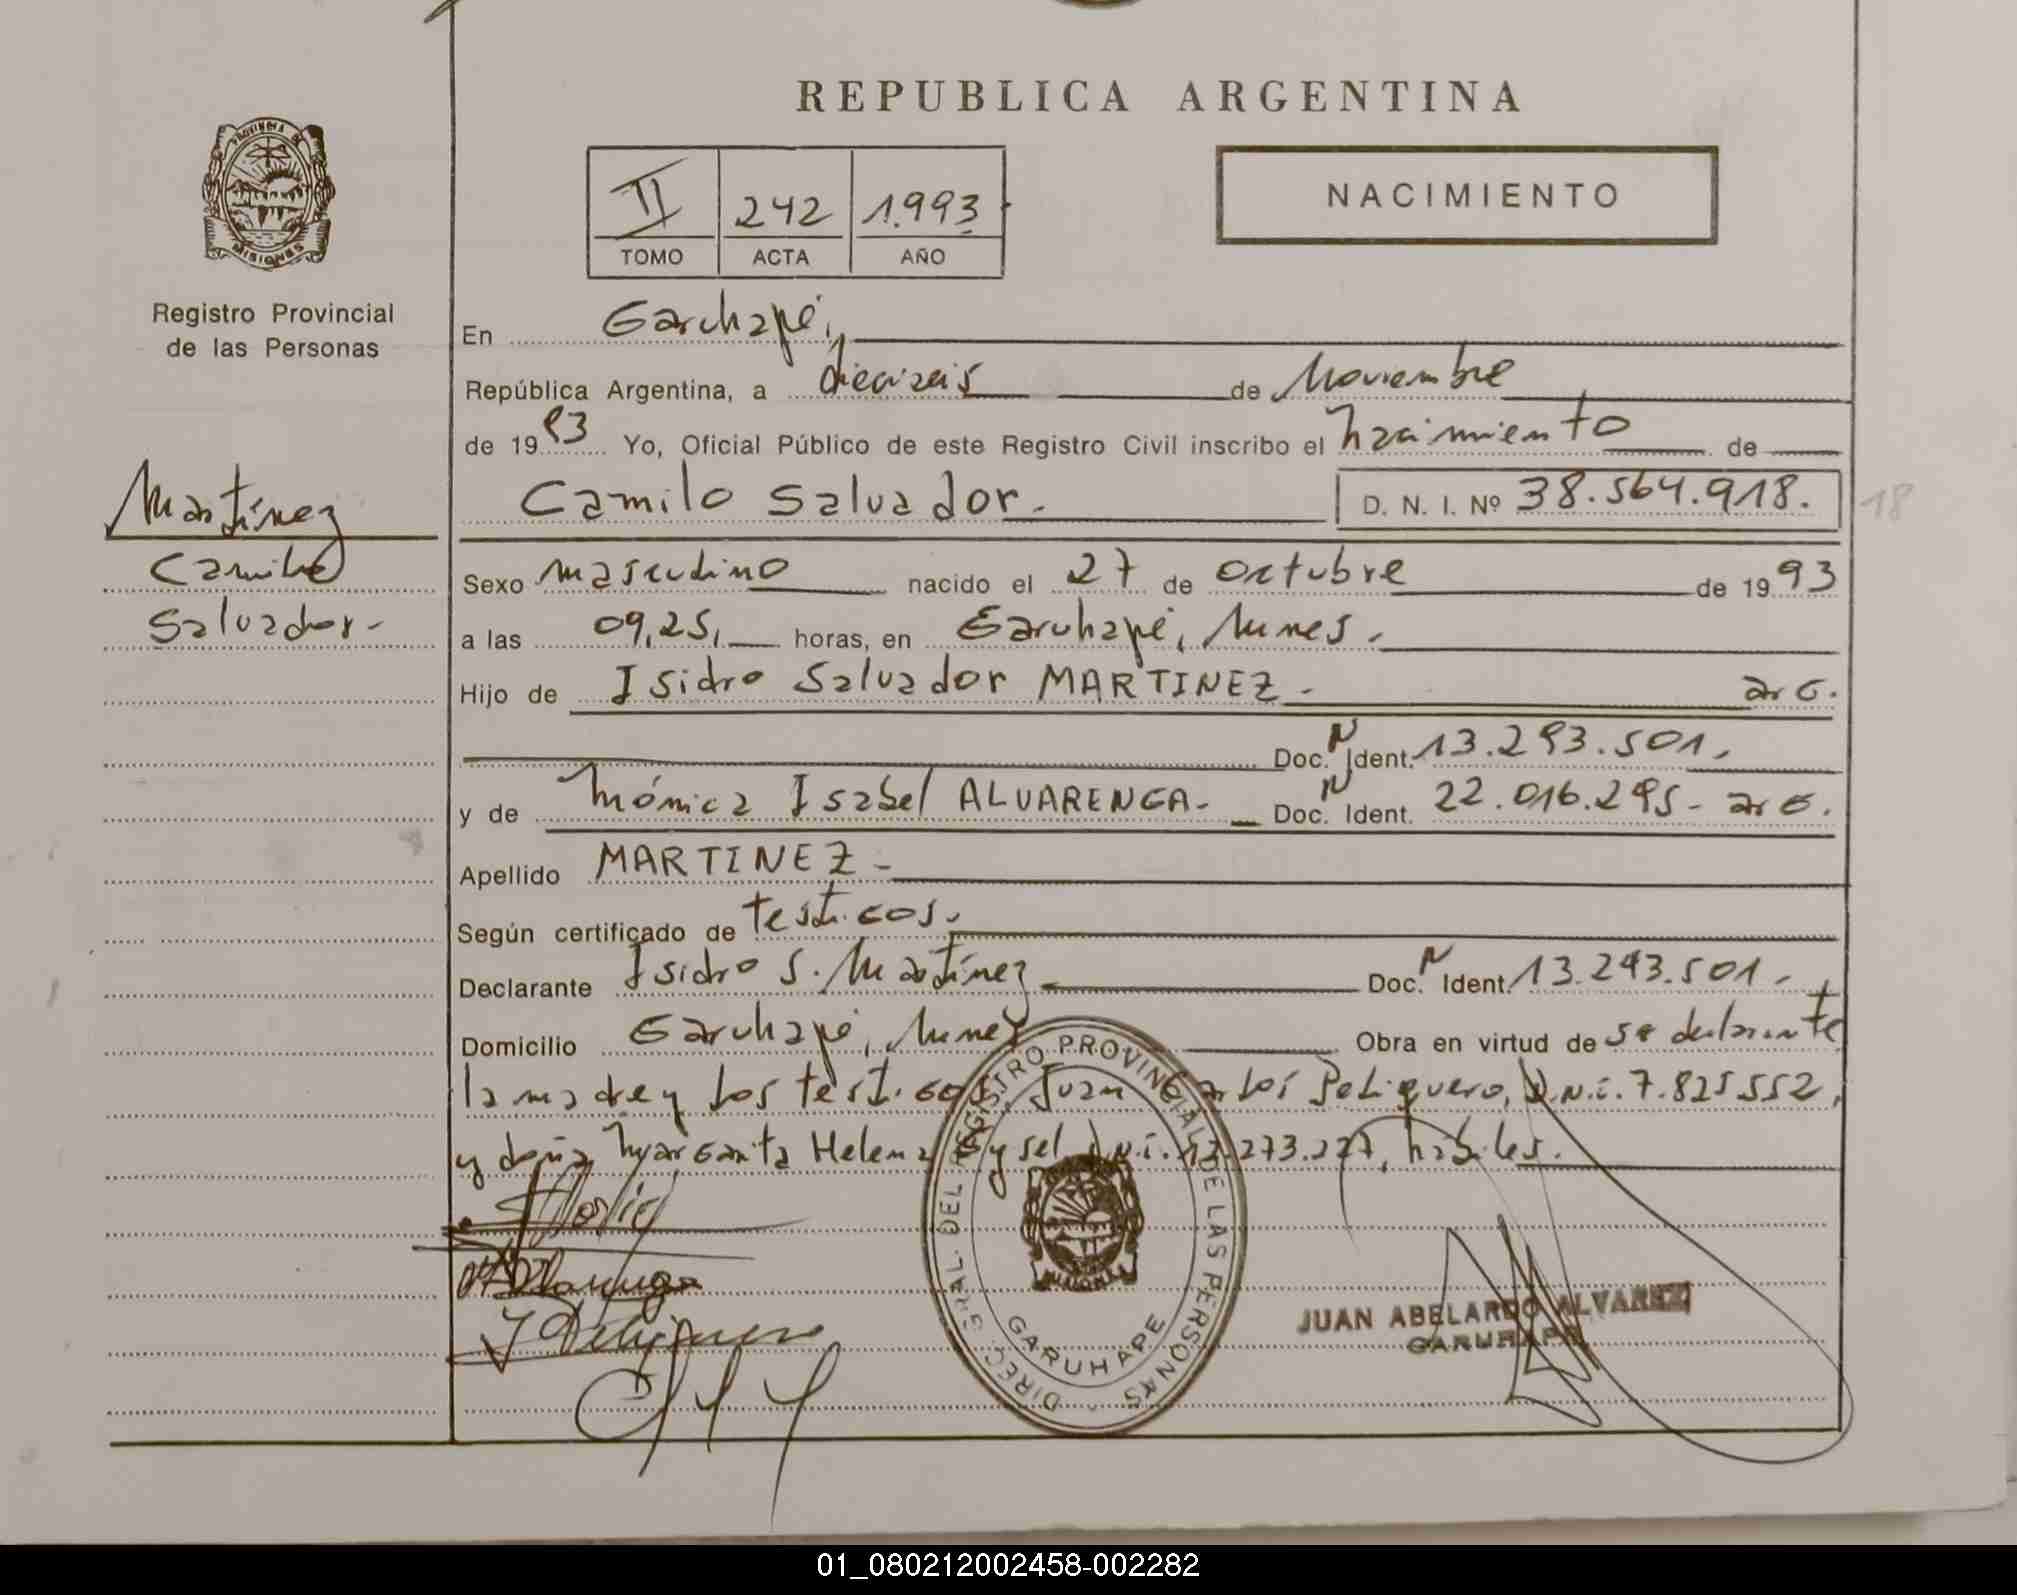 REPUBLICA ARGENTINA
II 242 1.993
TOMO ACTA AÑO
NACIMIENTO
PROVINCIA DE
MISIONES
Registro Provincial
de las Personas
Martínez
Camilo
Salvador.-
En Garuhapé,
República Argentina, a dieciseis de Noviembre
de 1993 Yo, Oficial Público de este Registro Civil inscribo el nacimiento de
Camilo Salvador.- D. N. I. Nº 38.564.918.
18
Sexo masculino nacido el 27 de octubre de 1993
a las 09,25, horas, en Garuhapé, Mnes.
Hijo de Isidro Salvador MARTINEZ.- arg.
Doc. N Ident. 13.293.501.
y de Mónica Isabel ALVARENGA.- Doc. N Ident. 22.016.295- arg.
Apellido MARTINEZ-
Según certificado de testigos.
Declarante Isidro S. Martínez Doc. N Ident. 13.293.501.-
Domicilio Garuhapé, Mnes Obra en virtud de ser declarante
la madre y los testigos, Juan Carlos Peliquero, D.N.i. 7.825.552,
y doña Margarita Helena D.N.i. 273.227, hábiles.
DIREC. GRAL. DEL REGISTRO PROVINCIAL DE LAS PERSONAS
MISIONES
GARUHAPE
JUAN ABELARDO ALVAREZ
GARUHAPE
01_080212002458-002282